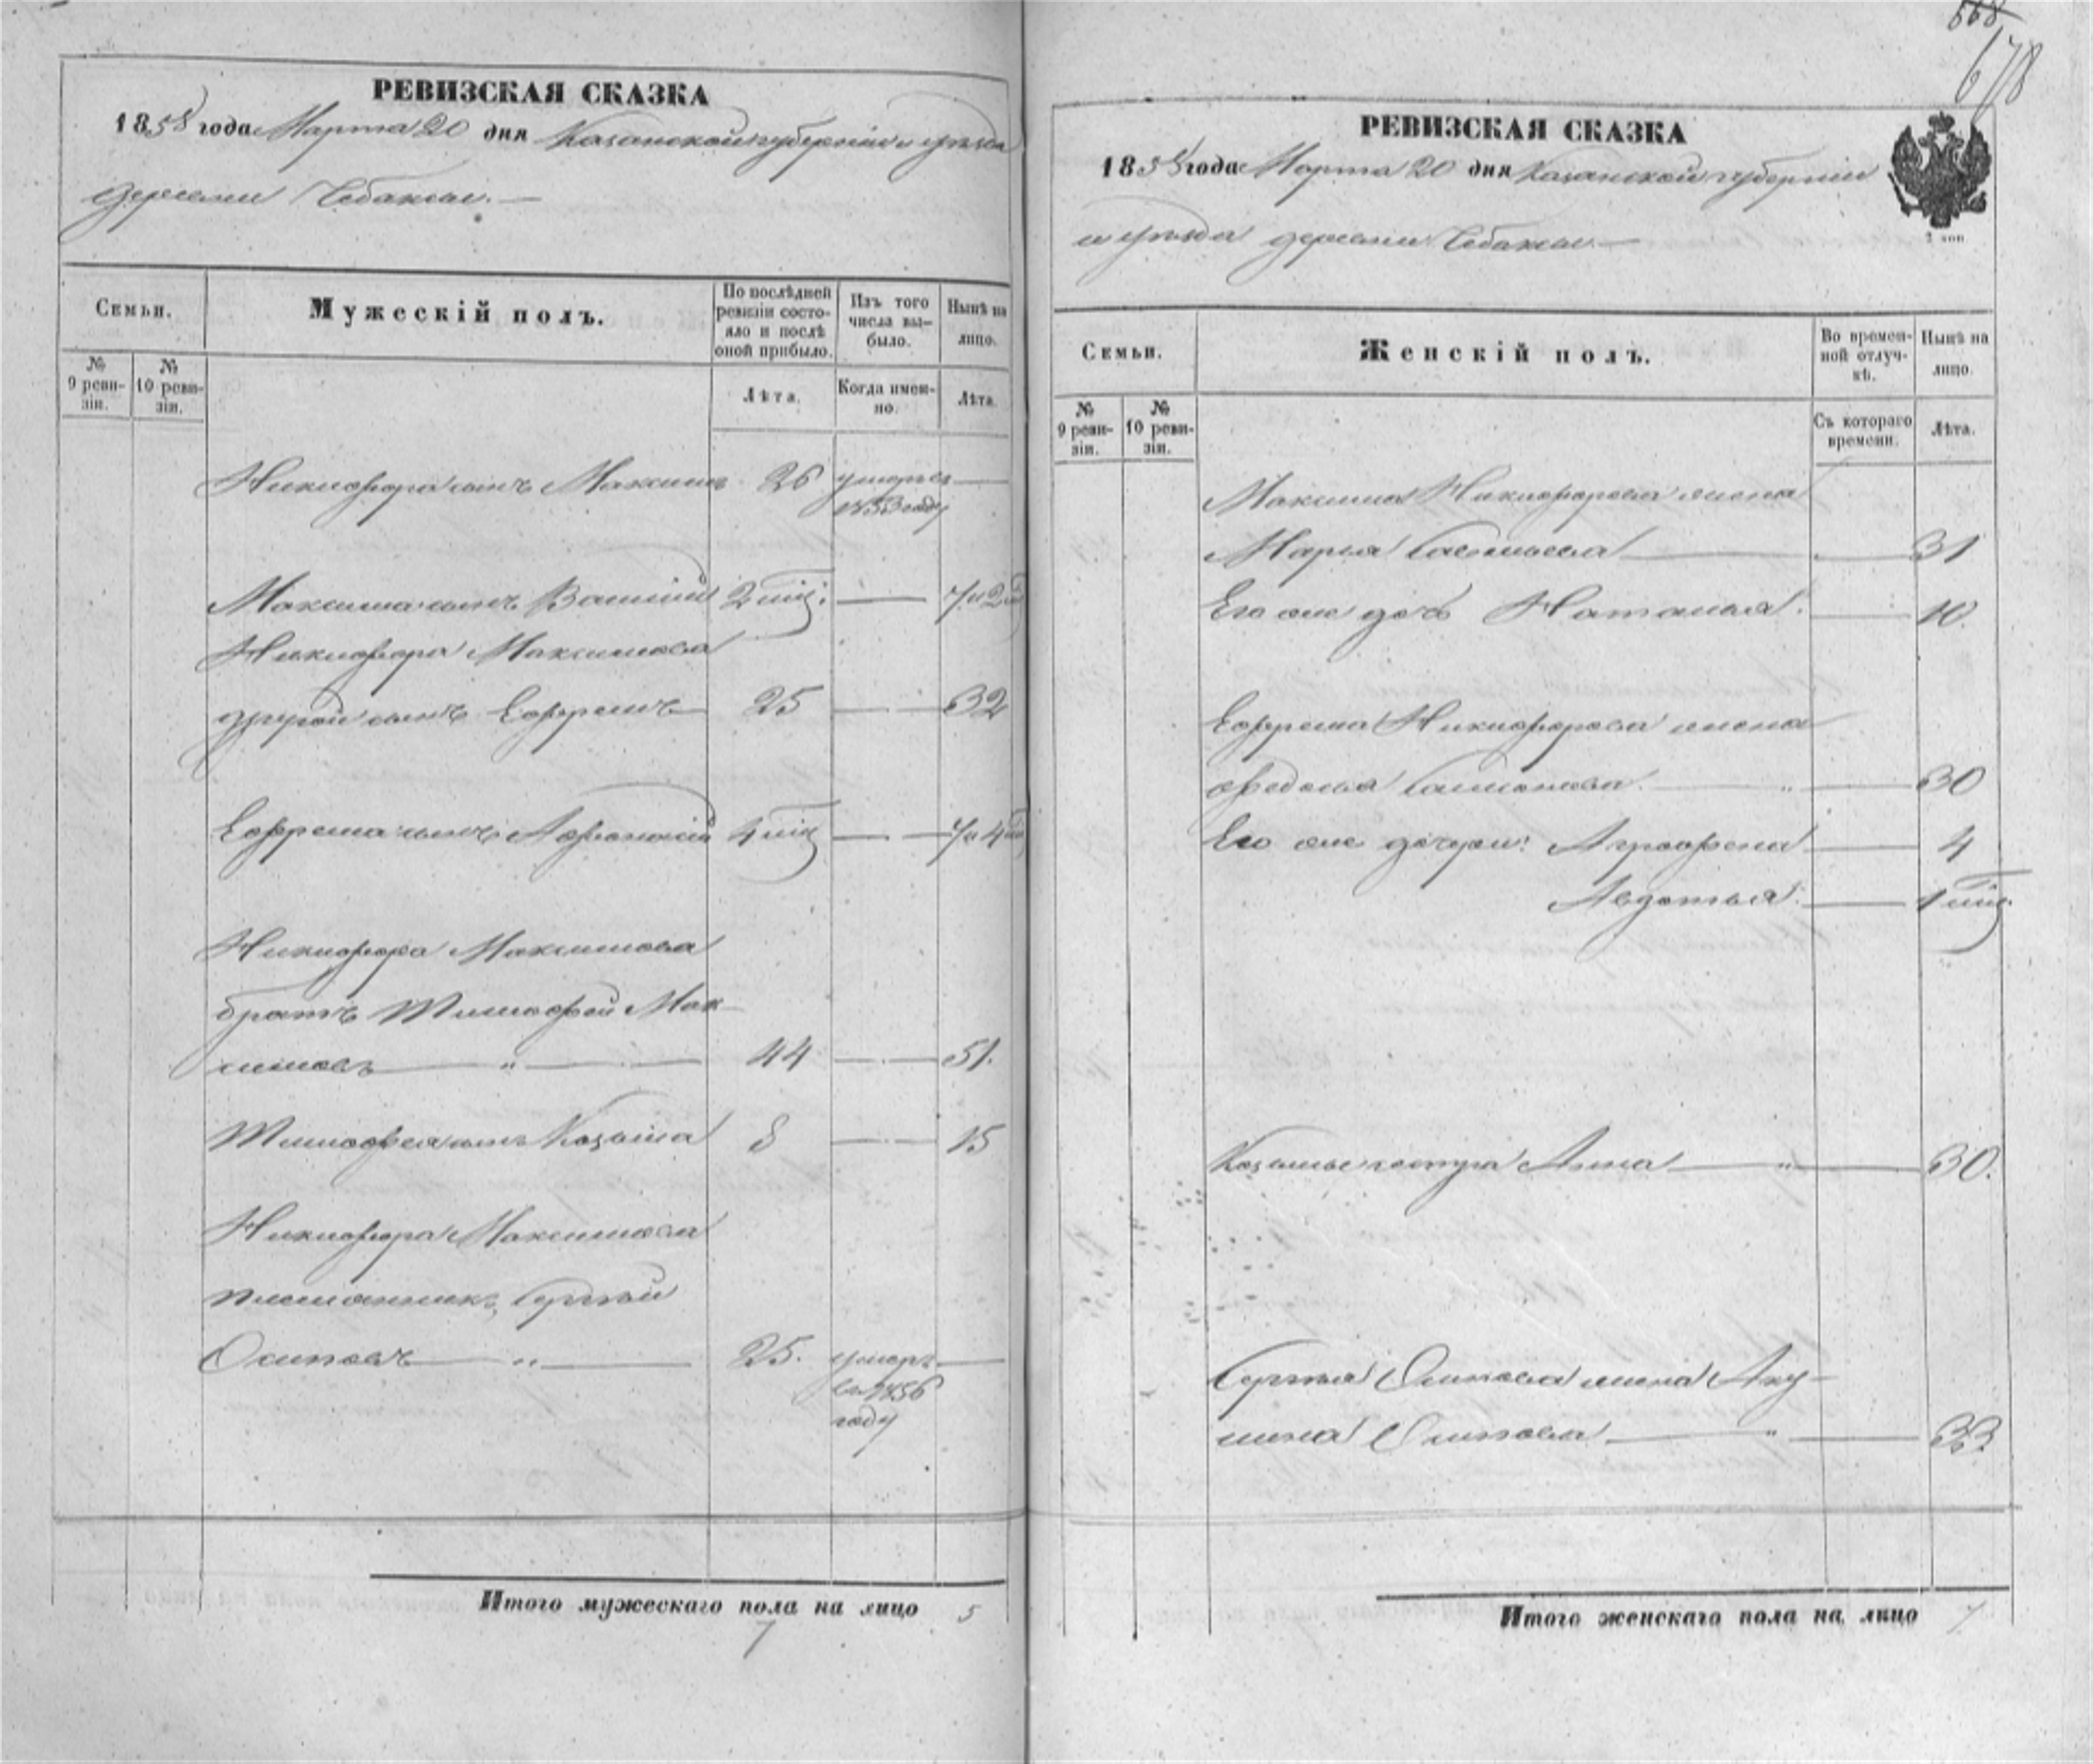 РЕВИЗСКАЯ СКАЗКА
1858 года Марта 20 дня Казанской губерніи и уѣзда
деревни Чебаксы.—
Семьи.
Мужескій полъ.
По послѣдней ревизіи состояло и послѣ оной прибыло.
Изъ того числа выбыло.
Нынѣ на лицо.
№ 9 ревизіи.
№ 10 ревизіи.
Лѣта.
Когда именно.
Лѣта.
Никифора сынъ Максимъ 26 умеръ
1853 году
Максима сынъ Василій 2 мѣц. — 7 и 2 м
Никифора Максимова
другой сынъ Ефремъ 25 — 32
Ефрема сынъ Афонасій 4 мѣц — 7 и 4 м
Никифора Максимова
братъ Тимофей Мак-
симовъ — " — 44 — 51.
Тимофея сынъ Козьма 8 — 15
Никифора Максимова
племянникъ, Сергѣй
Осиповъ — " — 25. умеръ
въ 1856
году
Итого мужескаго пола на лицо 5
7
568
678
РЕВИЗСКАЯ СКАЗКА
1858 года Марта 20 дня Казанской губерніи
и уѣзда деревни Чебаксы.—
Семьи.
Женскій полъ.
Во временной отлучкѣ.
Нынѣ на лицо.
№ 9 ревизіи.
№ 10 ревизіи.
Съ котораго времени.
Лѣта.
Максима Никифорова жена
Марья — 31
Его же дочь Наталья. — 10.
Ефрема Никифорова жена
Федосья — " — 30
Его же дочери: Аграфена — 4
Авдотья. — 1 мѣц.
Козьмы сестра Анна — " — 30.
Сергѣя Осипова жена Аку-
лина Осипова — " — 33.
Итого женскаго пола на лицо 7